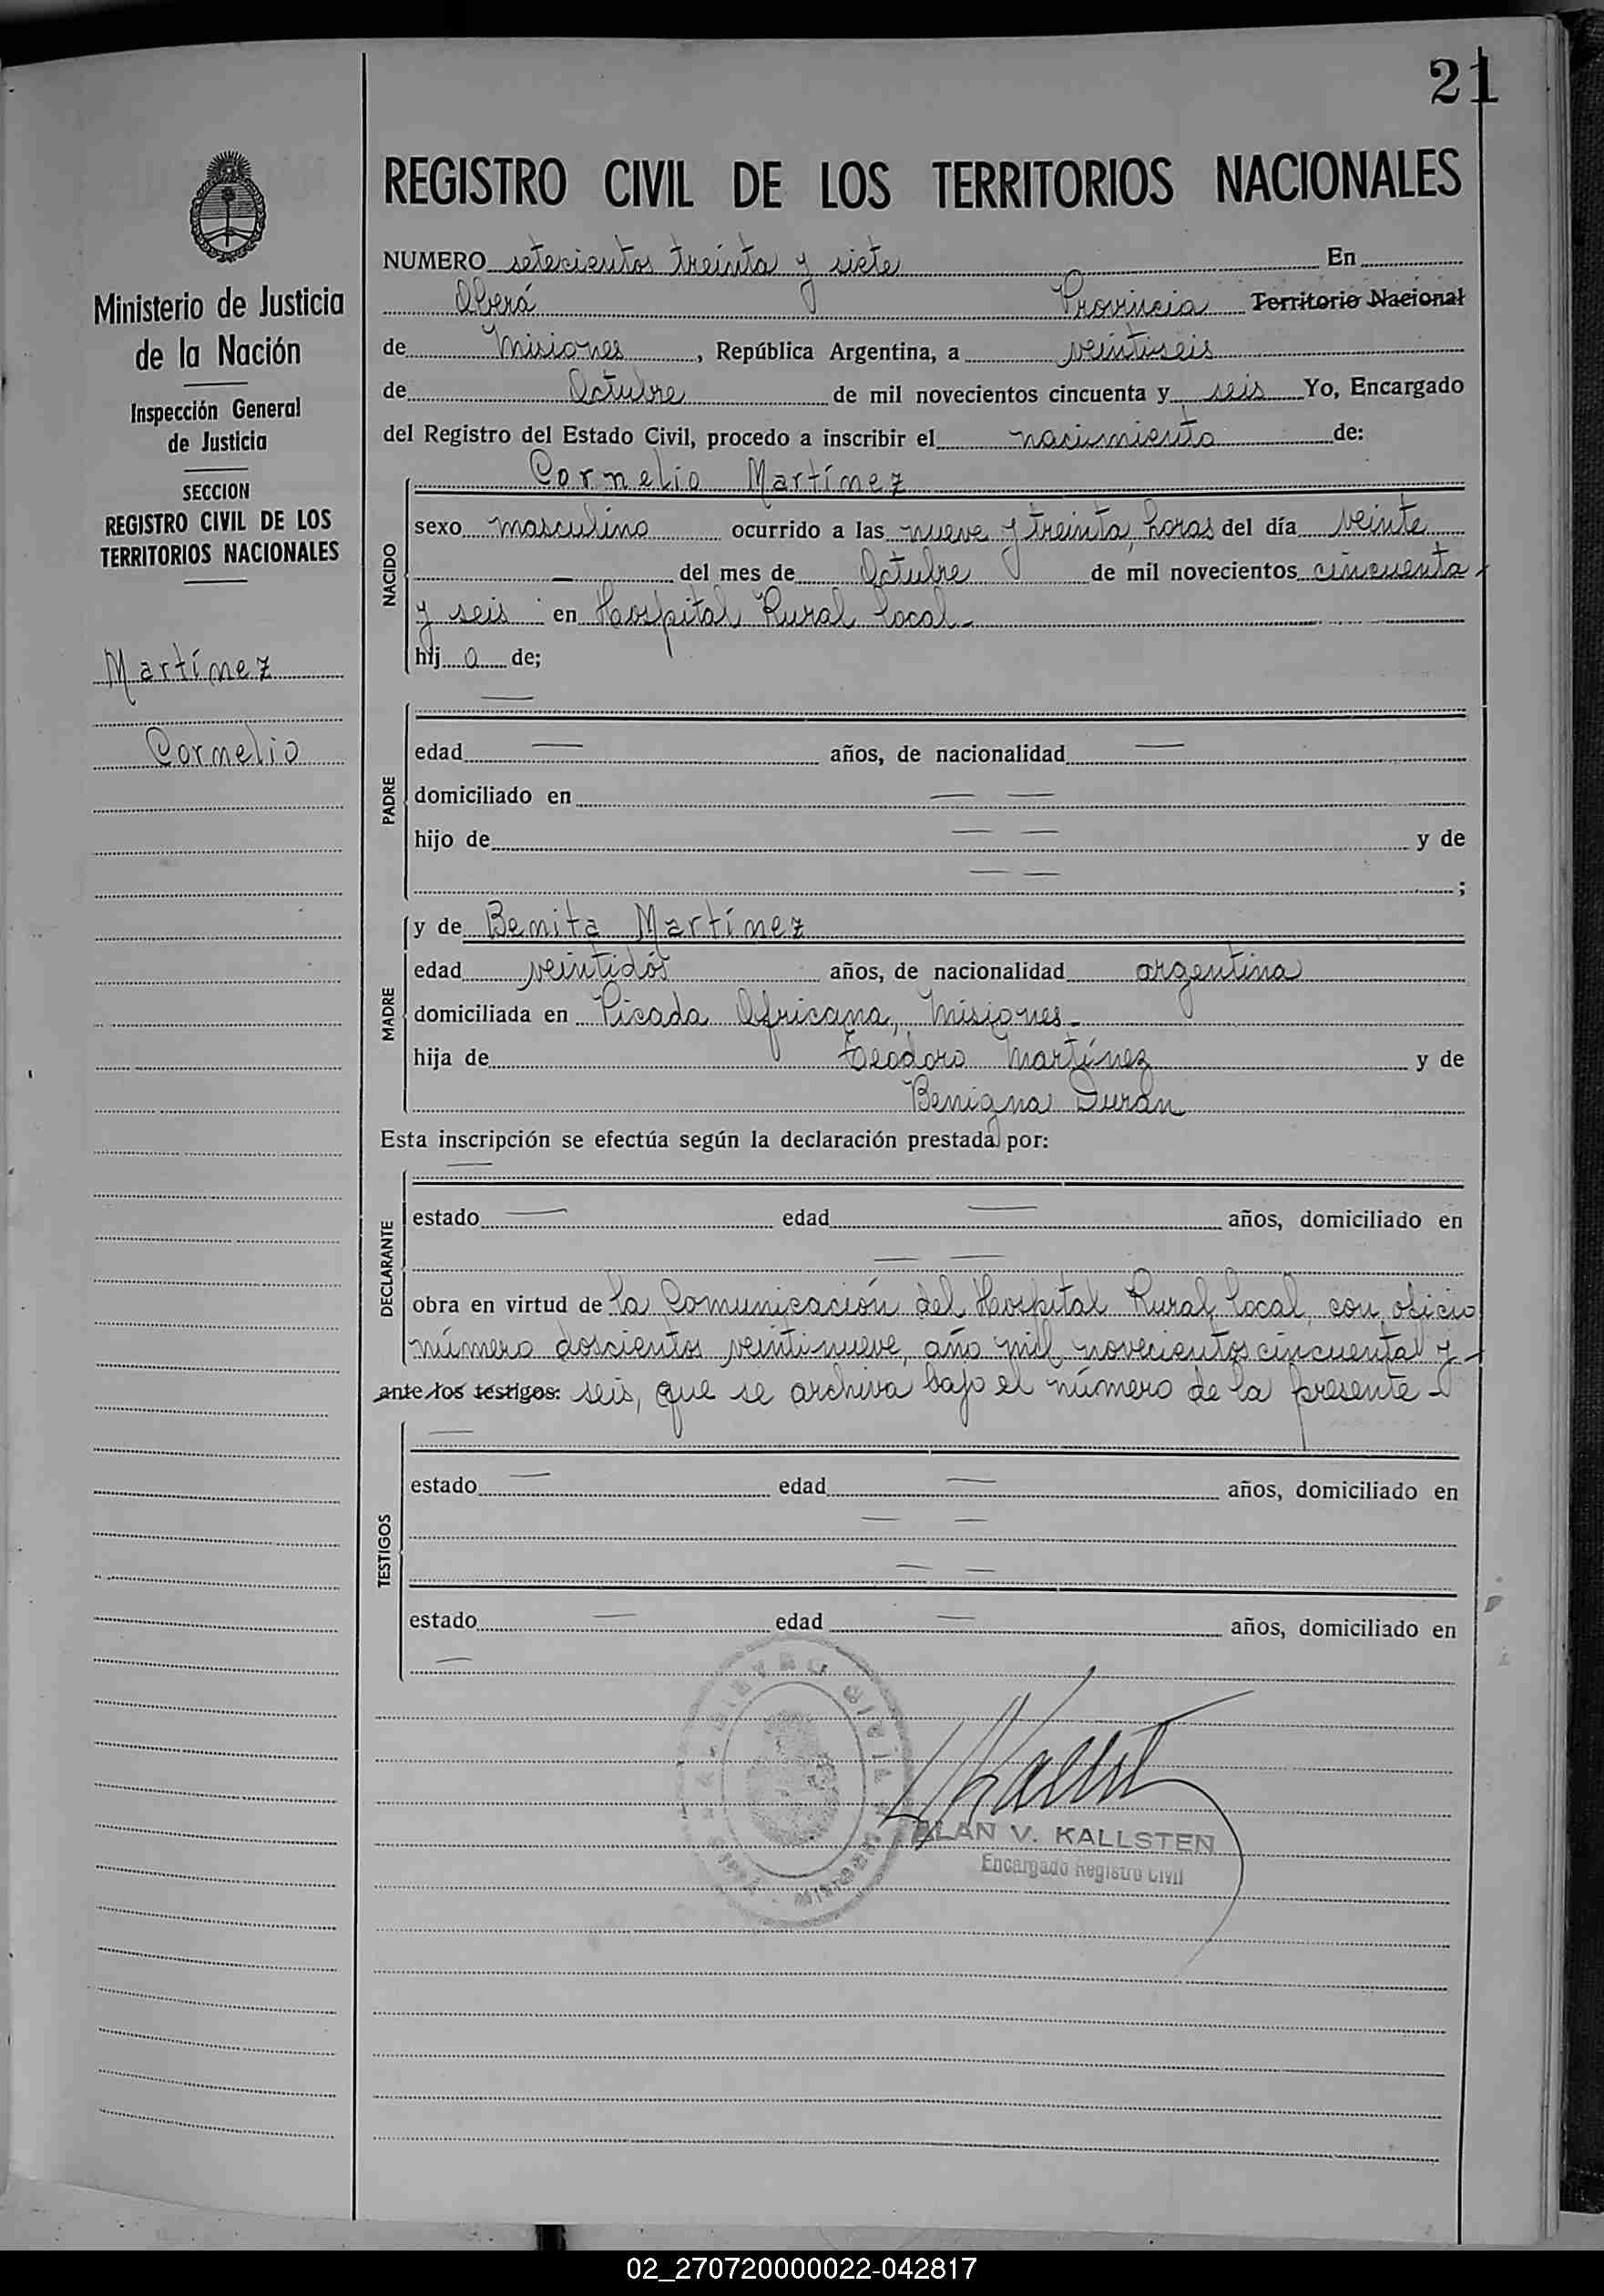 21
REGISTRO CIVIL DE LOS TERRITORIOS NACIONALES
NUMERO setecientos treinta y siete En
Oberá Provincia Territorio Nacional
de Misiones, República Argentina, a veintiseis
de Octubre de mil novecientos cincuenta y seis Yo, Encargado
del Registro del Estado Civil, procedo a inscribir el nacimiento de:
Ministerio de Justicia
de la Nación
Inspección General
de Justicia
SECCION
REGISTRO CIVIL DE LOS
TERRITORIOS NACIONALES
Martínez
Cornelio
NACIDO
Cornelio Martínez
sexo masculino ocurrido a las nueve y treinta horas del día veinte
— del mes de Octubre de mil novecientos cincuenta
y seis en Hospital Rural local.-
hij o de;
PADRE
—
edad — años, de nacionalidad —
domiciliado en — —
hijo de — — y de
— — ;
MADRE
y de Benita Martínez
edad veintidós años, de nacionalidad argentina
domiciliada en Picada Africana, Misiones.-
hija de Teodoro Martínez y de
Benigna Durán
Esta inscripción se efectúa según la declaración prestada por:
DECLARANTE
—
estado — edad — años, domiciliado en
— —
obra en virtud de la Comunicación del Hospital Rural local, con oficio
número doscientos veintinueve, año mil novecientos cincuenta y
ante los testigos: seis, que se archiva bajo el número de la presente -
TESTIGOS
—
estado — edad — años, domiciliado en
— —
— —
estado — edad — años, domiciliado en
—
REGISTRO CIVIL
ALAN V. KALLSTEN
Encargado Registro Civil
02_270720000022-042817